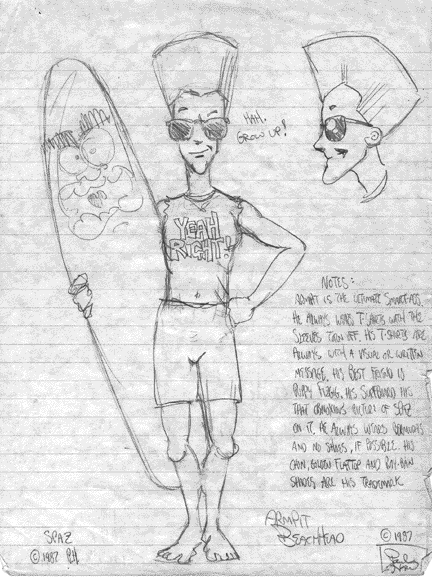 HAH.
GROW UP!
YEAH
RIGHT!
NOTES:
ARMPIT IS THE ULTIMATE SMARTASS.
HE ALWAYS WEARS T-SHIRTS WITH THE
SLEEVES TORN OFF. HIS T-SHIRTS ARE
ALWAYS WITH A VISUAL OR WRITTEN
MESSAGE. HIS BEST FRIEND IS
HIS SURFBOARD HAS
THAT OBNOXIOUS PICTURE OF SPAZ
ON IT. HE ALWAYS WEARS BERMUDAS
AND NO SHOES, IF POSSIBLE. HIS
CHIN, GOLDEN FLATTOP AND RAY-BAN
SHADES ARE HIS TRADEMARK.
ARMPIT
BEACHHEAD
SPAZ
© 1987 RH
© 1987